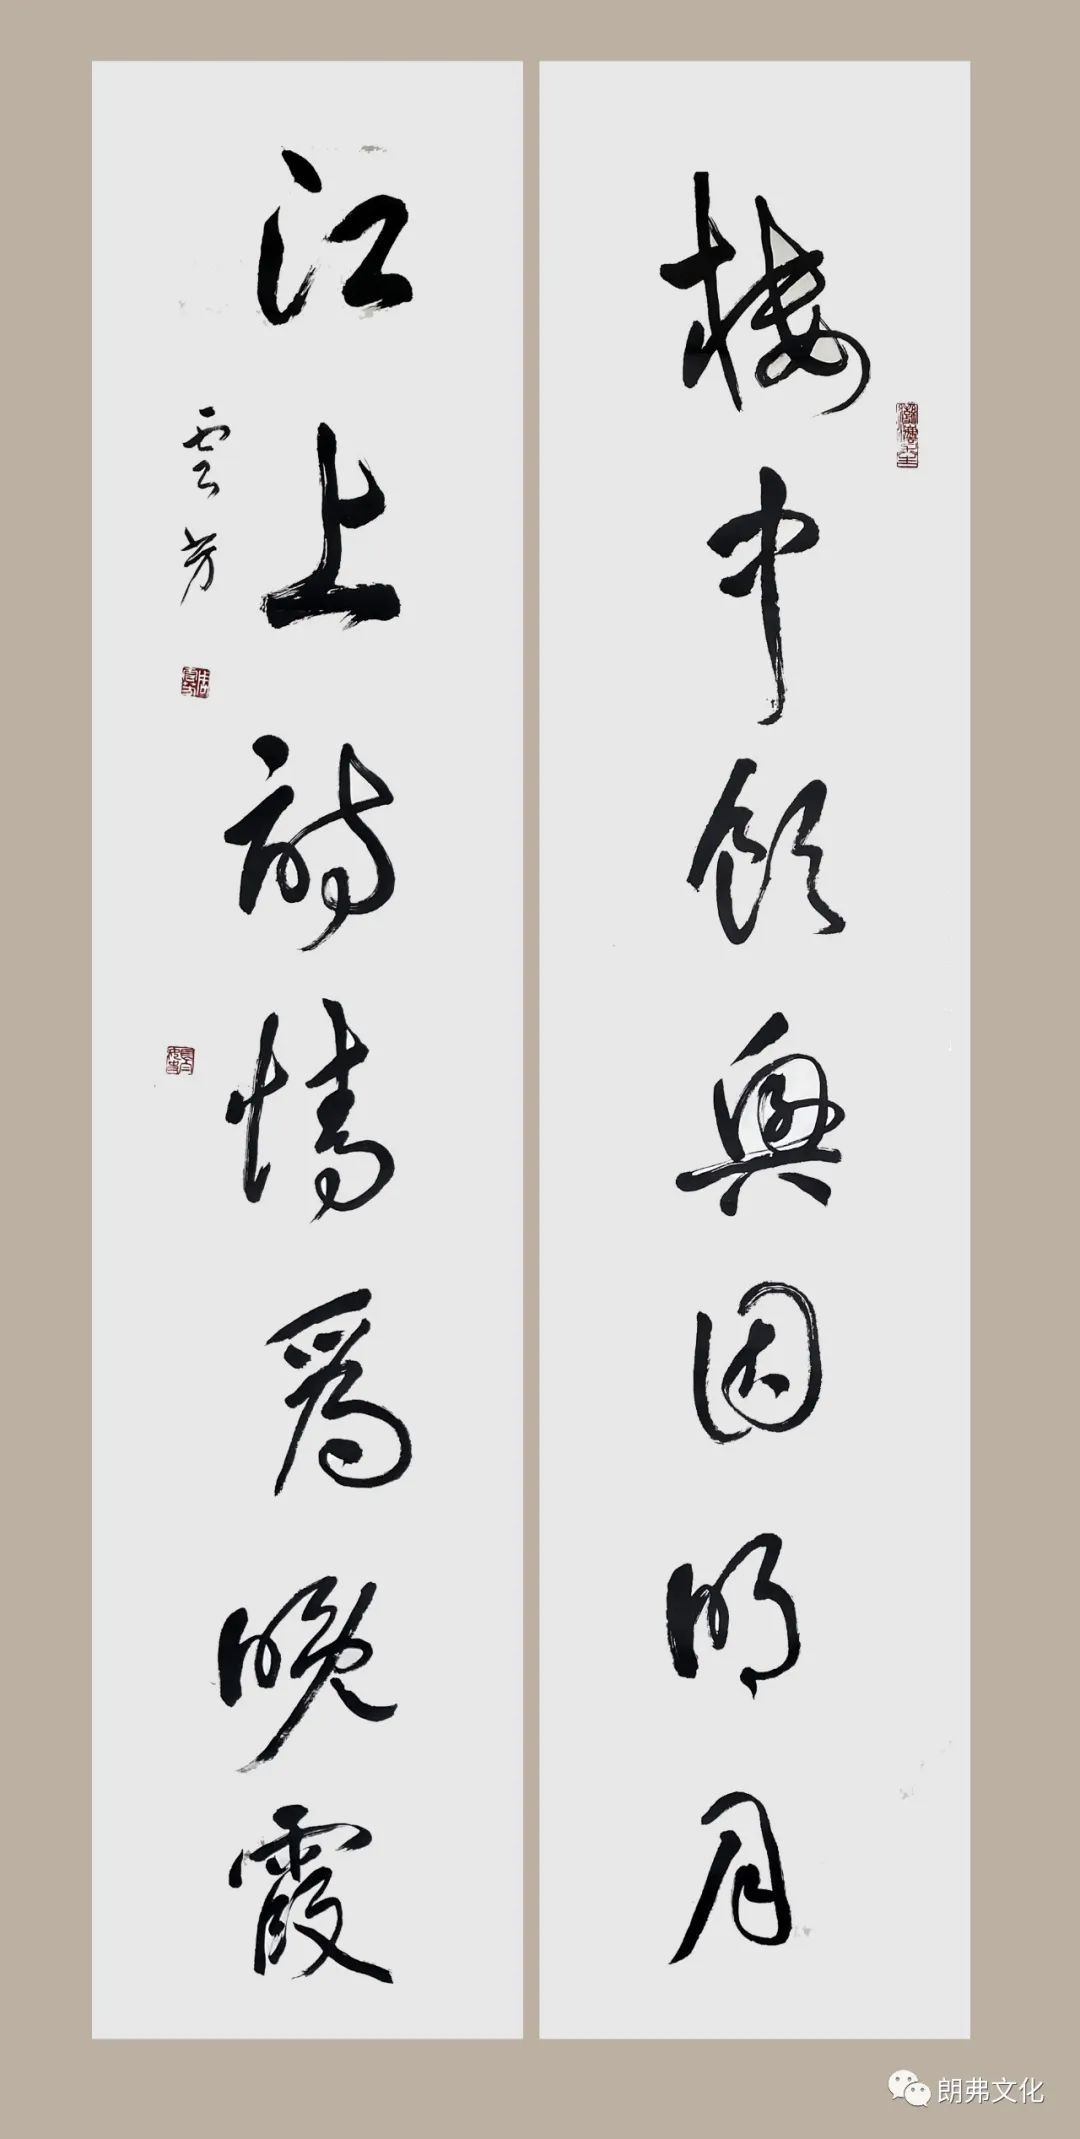 楼中饮兴因明月
江上詩情爲晚霞
雲芳
朗弗文化